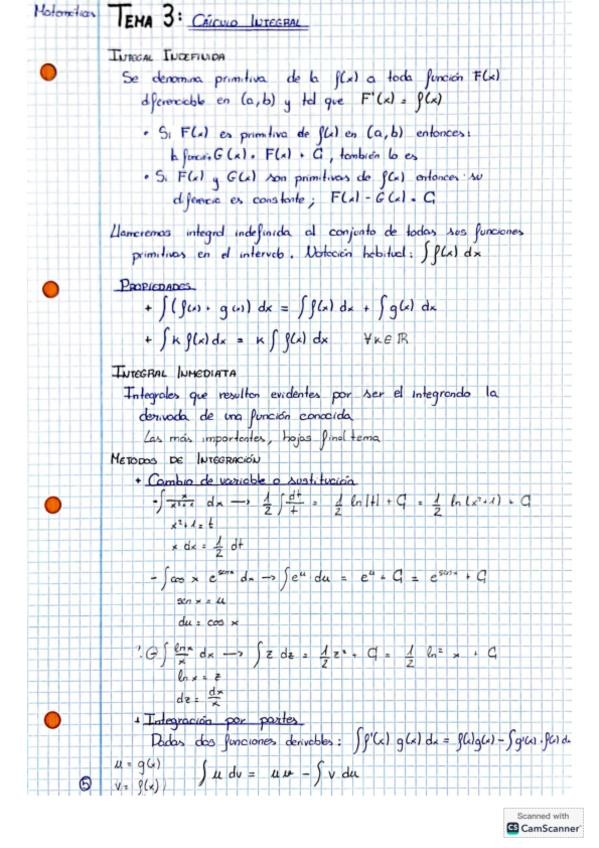 Matemáticas
TEMA 3: CÁLCULO INTEGRAL
INTEGRAL INDEFINIDA
Se denomina primitiva de la f(x) a toda función F(x)
diferenciable en (a,b) y tal que F'(x) = f(x)
• Si F(x) es primitiva de f(x) en (a,b) entonces:
la función G(x) = F(x) + C, también lo es
• Si F(x) y G(x) son primitivas de f(x) entonces su
diferencia es constante; F(x) - G(x) = C
Llamaremos integral indefinida al conjunto de todas sus funciones
primitivas en el intervalo. Notación habitual: ∫f(x) dx
PROPIEDADES
+ ∫(f(x) + g(x)) dx = ∫f(x) dx + ∫g(x) dx
+ ∫k f(x) dx = k ∫ f(x) dx ∀k∈ℝ
INTEGRAL INMEDIATA
Integrales que resultan evidentes por ser el integrando la
derivada de una función conocida
Las más importantes, hojas final tema
METODOS DE INTEGRACIÓN
+ Cambio de variable o sustitución
- ∫ x/(x²+1) dx → 1/2 ∫ dt/t = 1/2 ln|t| + C = 1/2 ln(x²+1) + C
x²+1 = t
x dx = 1/2 dt
- ∫cos x e^(sen x) dx → ∫e^u du = e^u + C = e^(sen x) + C
sen x = u
du = cos x
∫ ln x/x dx → ∫z dz = 1/2 z² + C = 1/2 ln² x + C
ln x = z
dz = dx/x
+ Integración por partes
Dadas dos funciones derivables: ∫f'(x) g(x) dx = f(x)g(x) - ∫g'(x)·f(x) dx
u = g(x)
v = f(x)
∫u dv = uv - ∫v du
5
Scanned with
CS CamScanner